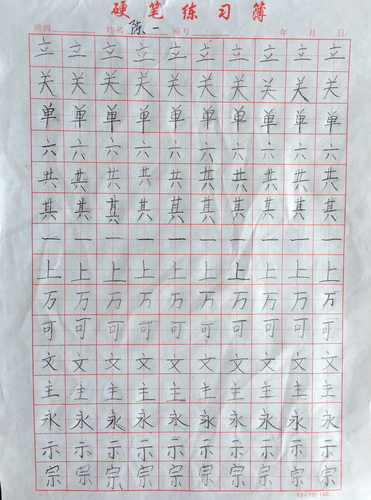 硬笔练习簿
班级 姓名 陈一 座号 年 月 日
立立立立立立立立立立
关关关关关关关关关关
单单单单单单单单单单
六六六六六六六六六六
共共共共共共共共共共
其其其其其其其其其其
一一一一一一一一一一
上上上上上上上上上上
万万万万万万万万万万
可可可可可可可可可可
文文文文文文文文文文
主主主主主主主主主主
永永永永永永永永永永
示示示示示示示示示示
宗宗宗宗宗宗宗宗宗宗